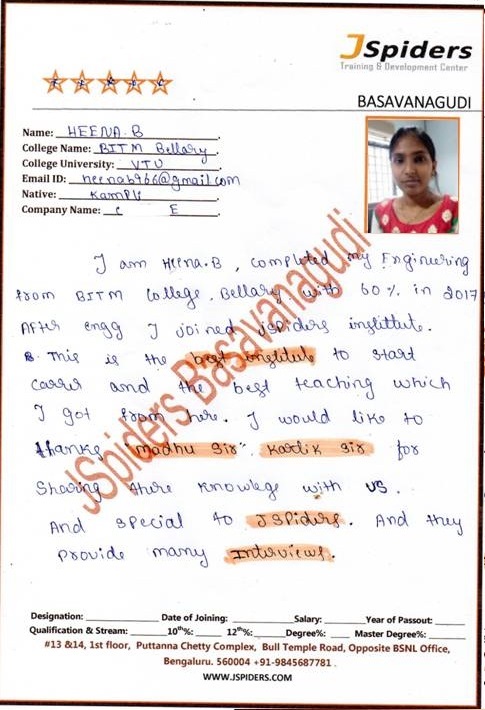 JSpiders
Training & Development Center
BASAVANAGUDI
Name: HEENA.B
College Name: BITM Bellary
College University: VTU
Email ID: heenab966@gmail.com
Native: Kampli
Company Name: C E
I am Heena.B, completed my Engineering
from BITM College, Bellary. with 60% in 2017
After engg I joined jspiders institute.
This is the best institute to start
carrer and the best teaching which
I got from here. I would like to
thanks "madhu sir". Kartik sir for
sharing there knowlege with us.
And special to JSPiders. And they
provide many Interviews.
JSpiders Basavanagudi
Designation: Date of Joining: Salary: Year of Passout:
Qualification & Stream: 10th%: 12th%: Degree%: Master Degree%:
#13 &14, 1st floor, Puttanna Chetty Complex, Bull Temple Road, Opposite BSNL Office,
Bengaluru. 560004 +91-9845687781
WWW.JSPIDERS.COM